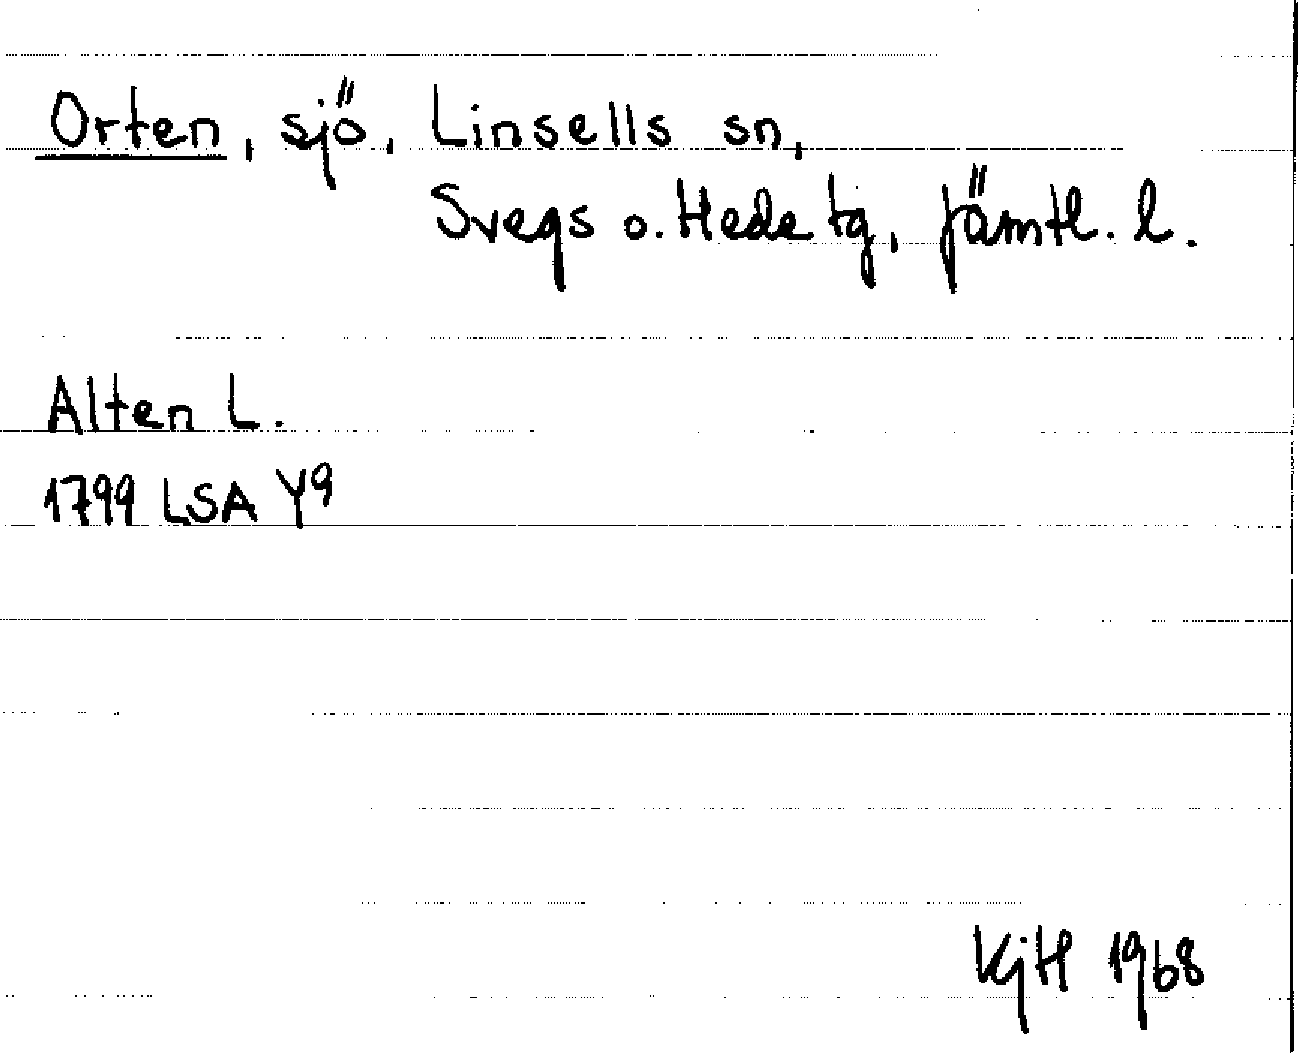 Orten, sjö, Linsells sn,
Svegs o. Hede tg, Jämtl. l.
Alten L.
1799 LSA Y9
KjH 1968